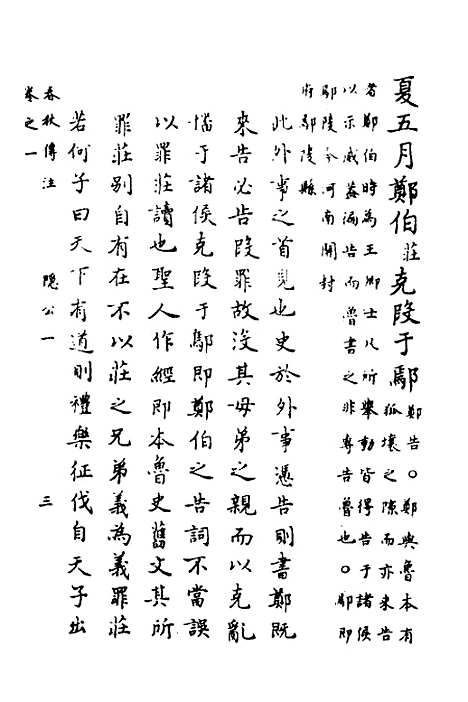 夏五月鄭伯莊克段于鄢鄭告○鄭與魯本有
狐壤之隙而亦來告
者鄭伯時為王卿士凡所舉動皆得告于諸侯
以示威蓋徧告而魯書之非專告魯也○鄢即
鄢陵今河南開封
府鄢陵縣
此外事之首見也史於外事憑告則書鄭既
來告必告段罪故沒其母弟之親而以克亂
愶于諸侯克段于鄢即鄭伯之告詞不當誤
以罪莊讀也聖人作經即本魯史舊文其所
罪莊別自有在不以莊之兄弟義為義罪莊
若何子曰天下有道則禮樂征伐自天子出
春秋傳注 隱公一 三
卷之一